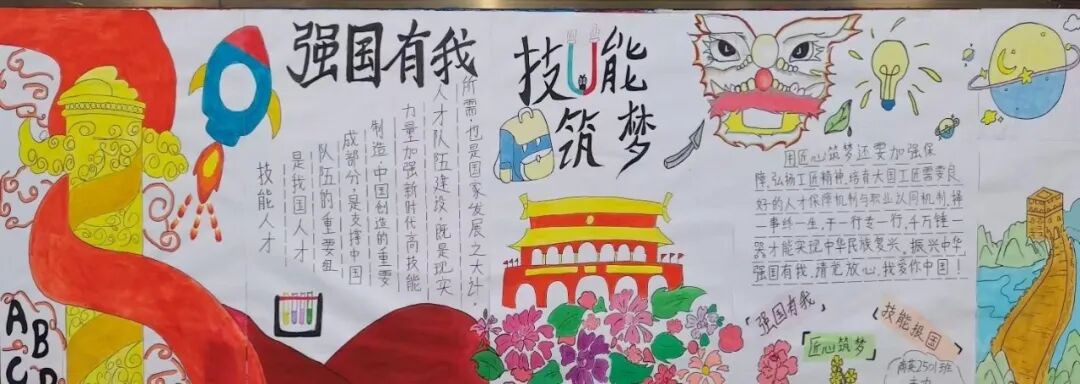 强国有我
技能
筑梦
技能人才
是我国人才
队伍的重要组
成部分,是支撑中国
制造,中国创造的重要
力量加强新时代高技能
人才队伍建设,既是现实
所需,也是国家发展之大计
用匠心筑梦还要加强保
障,弘扬工匠精神,培育大国工匠需要良
好的人才保障机制与职业认同机制,择
一事终一生,干一行专一行,千万锤一
器才能实现中华民族复兴、振兴中华,
强国有我,请党放心,我爱你中国!
「强国有我」
技能报国
「匠心筑梦」
商英2501班
A
B
C
D